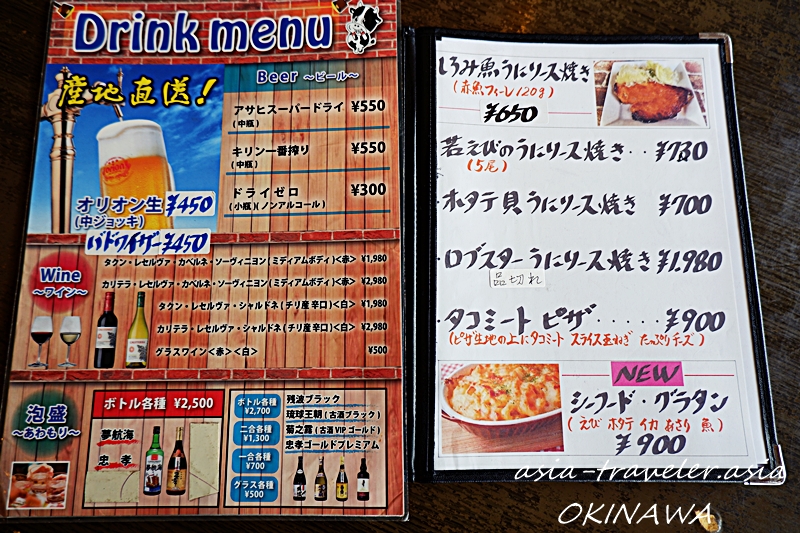 Drink menu
産地直送!
オリオン生 ¥450
(中ジョッキ)
バドワイザー¥450
Beer ～ビール～
アサヒスーパードライ ¥550
(中瓶)
キリン一番搾り ¥550
(中瓶)
ドライゼロ ¥300
(小瓶)(ノンアルコール)
Wine
～ワイン～
タクン・レセルヴァ・カベルネ・ソーヴィニヨン(ミディアムボディ)<赤> ¥1,980
カリテラ・レセルヴァ・カベルネ・ソーヴィニヨン(ミディアムボディ)<赤> ¥2,980
タクン・レセルヴァ・シャルドネ(チリ産辛口)<白> ¥1,980
カリテラ・レセルヴァ・シャルドネ(チリ産辛口)<白> ¥2,980
グラスワイン<赤><白> ¥500
泡盛
～あわもり～
ボトル各種 ¥2,500
夢航海
忠孝
ボトル各種
¥2,700
二合各種
¥1,300
一合各種
¥700
グラス各種
¥500
残波ブラック
琉球王朝(古酒ブラック)
菊之露(古酒VIPゴールド)
忠孝ゴールドプレミアム
しろみ魚うにソース焼き
(赤魚フィーレ120g)
¥650
若えびのうにソース焼き‥¥780
(5尾)
・ホタテ貝うにソース焼き ¥700
・ロブスターうにソース焼き¥1.980
品切れ
・タコミート ピザ・・・・・¥900
(ピザ生地の上にタコミート スライス玉ねぎ たっぷりチーズ)
NEW
シーフード・グラタン
(えび ホタテ イカ あさり 魚)
¥900
asia-traveler.asia
OKINAWA